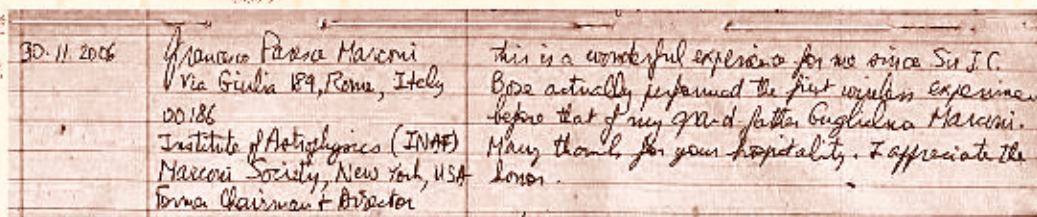 30.11.2006
Francesco Paresce Marconi
Via Giulia 189, Rome, Italy
00186
Institute of Astrophysics (INAF)
Marconi Society, New York, USA
Former Chairman + Director
This is a wonderful experience for me since Sir J.C.
Bose actually performed the first wireless experimen
before that of my grand father Guglielmo Marconi.
Many thanks for your hospitality. I appreciate the
honor.